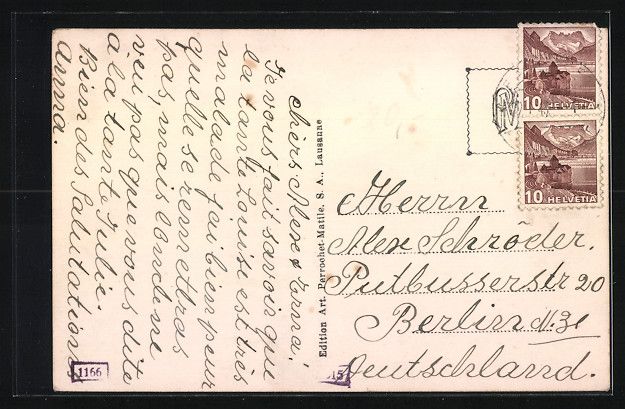 chèrs Alex & Erna!
Je vous fait savoir que
la tante Louise est très
malade j'ai bien peur
quelle se remettras
pas, mais on ne
veu pas que vous dite
à la tante Julie.
Bien des Salutations
Anna.
Edition Art. Perrochet-Matile. S. A., Lausanne
Herrn
Alex Schröder.
Putbusserstr 20
Berlin N. 31
Deutschland.
10 HELVETIA
10 HELVETIA
1166
15